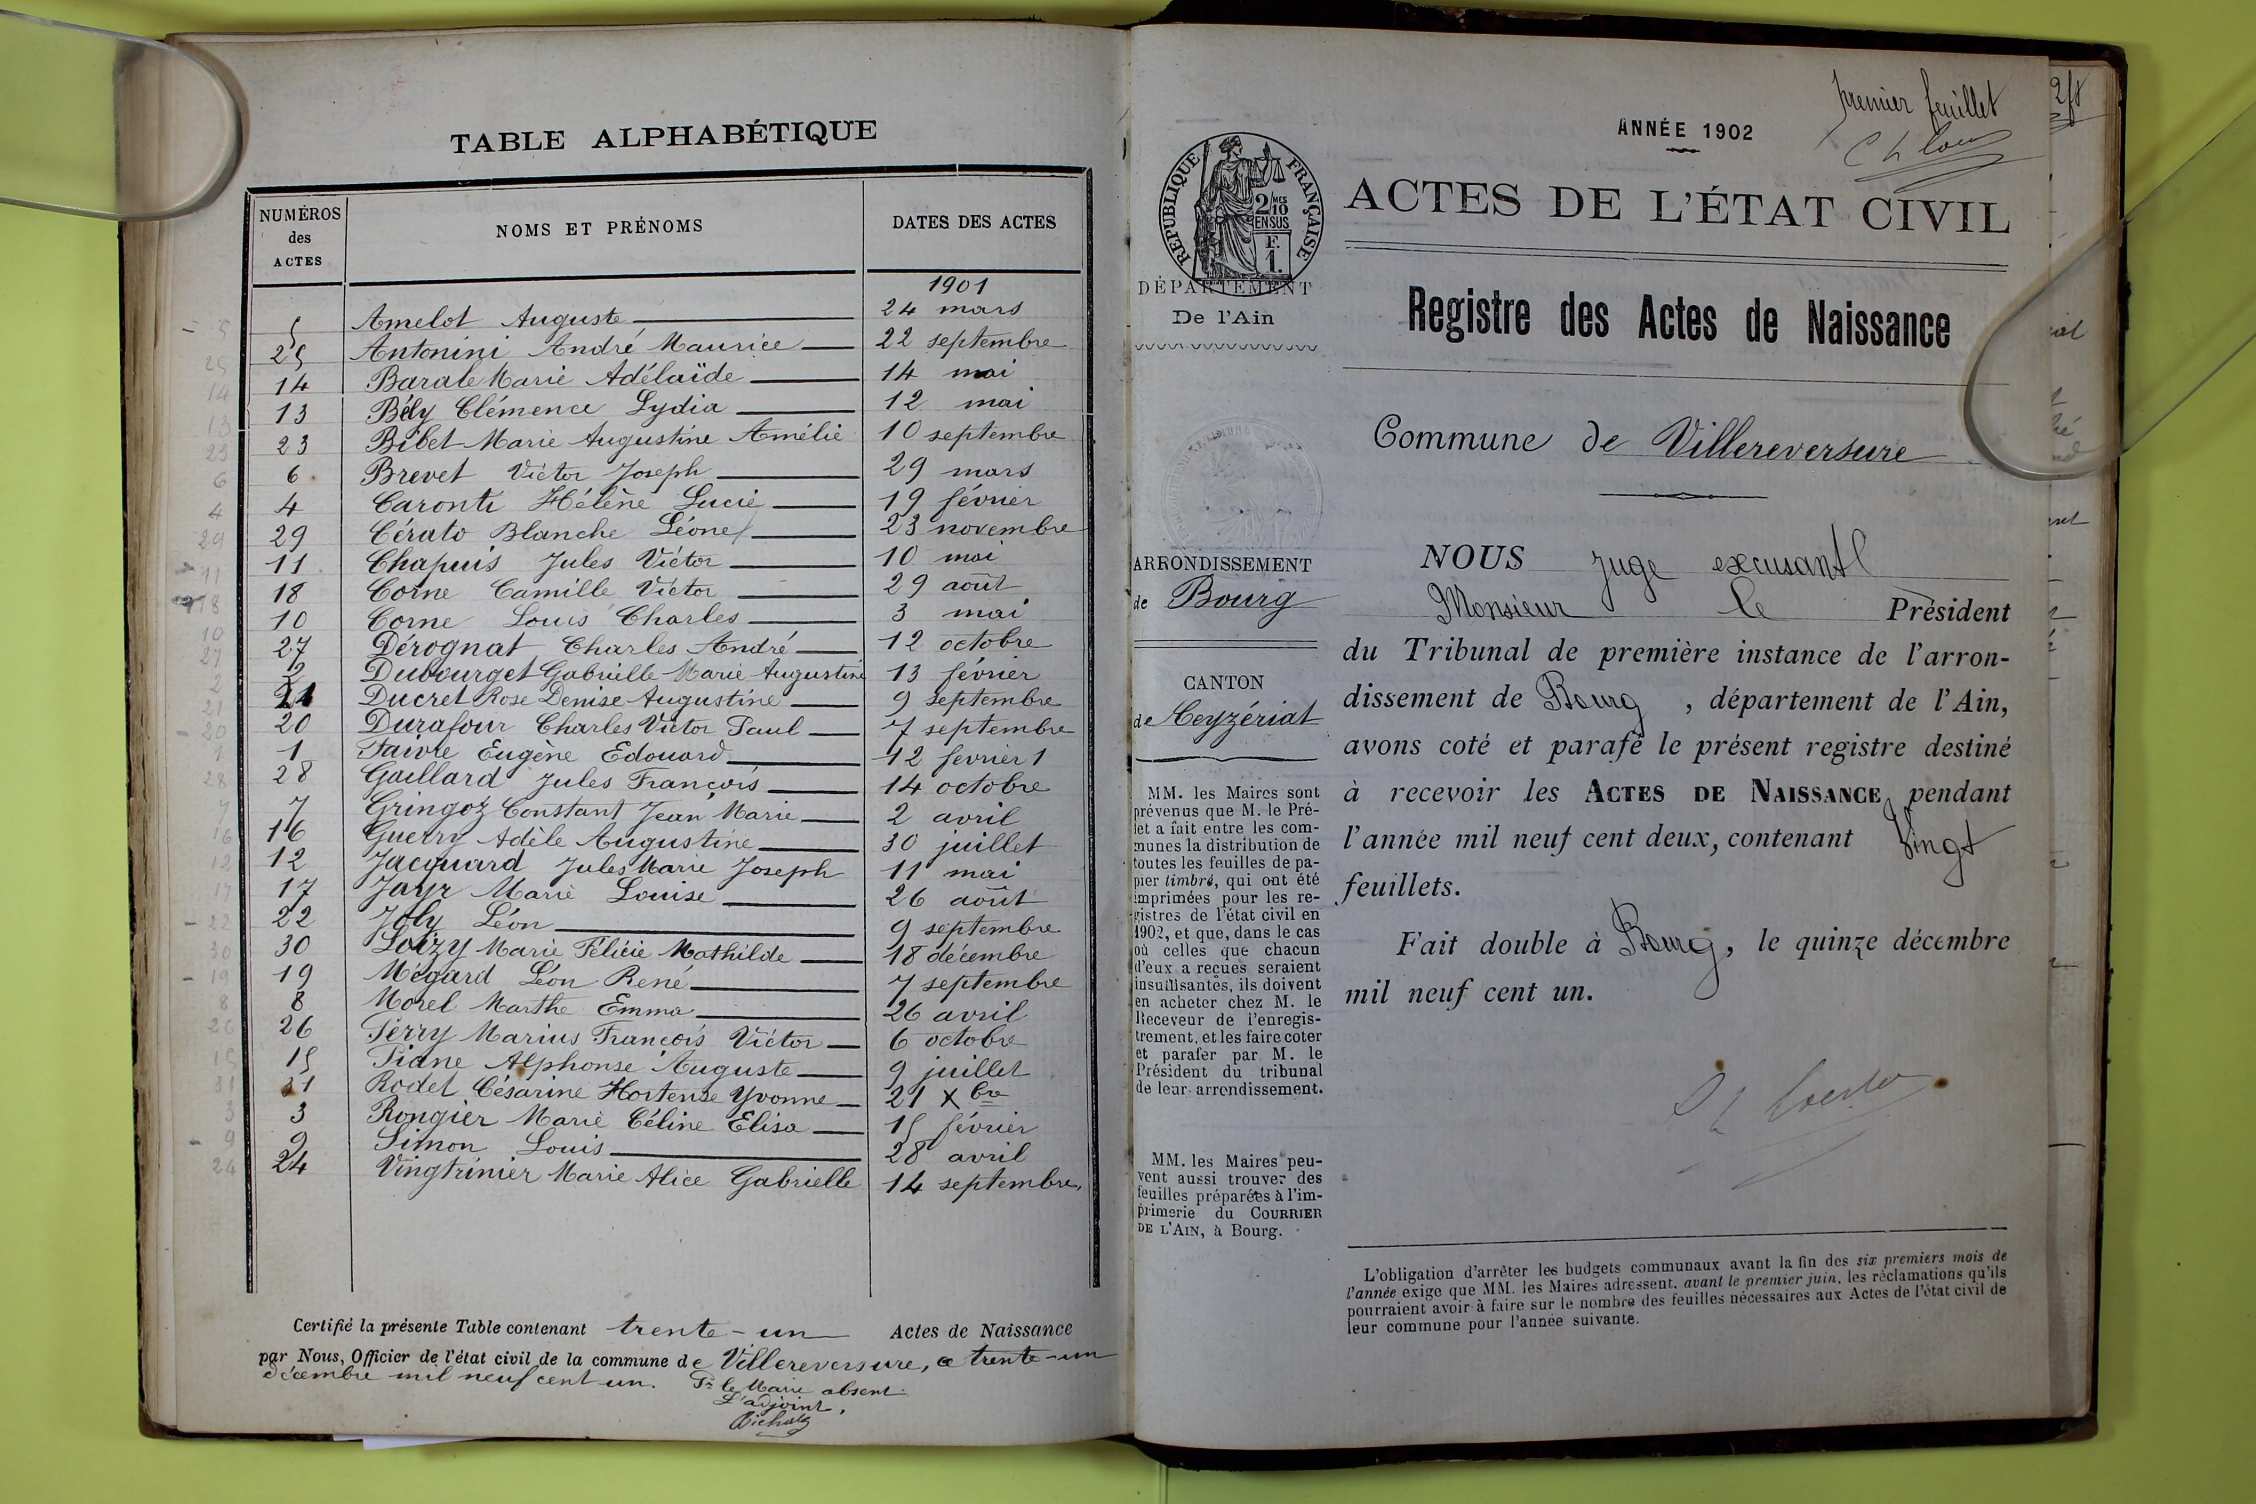 TABLE ALPHABÉTIQUE
NUMÉROS des ACTES NOMS ET PRÉNOMS DATES DES ACTES
1901
5 Amelot Auguste 24 mars
25 Antonini André Maurice 22 septembre
14 Barale Marie Adélaïde 14 mai
13 Bély Clémence Lydia 12 mai
23 Bibet Marie Augustine Amélie 10 septembre
6 Brevet Victor Joseph 29 mars
4 Caronti Hélène Lucie 19 février
29 Cérato Blanche Léone 23 novembre
11 Chapuis Jules Victor 10 mai
18 Corne Camille Victor 29 août
10 Corne Louis Charles 3 mai
27 Dérognat Charles André 12 octobre
2 Dubourget Gabrielle Marie Augustine 13 février
21 Ducret Rose Denise Augustine 9 septembre
20 Durafour Charles Victor Paul 7 septembre
1 Faivre Eugène Edouard 12 février
28 Gaillard Jules François 14 octobre
7 Gringoz Constant Jean Marie 2 avril
16 Guerry Adèle Augustine 30 juillet
12 Jacquard Jules Marie Joseph 11 mai
17 Jayr Marie Louise 26 août
22 Joly Léon 9 septembre
30 Loizy Marie Félicie Mathilde 18 décembre
19 Mégard Léon René 7 septembre
8 Morel Marthe Emma 26 avril
26 Perry Marius François Victor 6 octobre
15 Piane Alphonse Auguste 9 juillet
31 Rodet Césarine Hortense Yvonne 21 Xbre
3 Rongier Marie Céline Elisa 15 février
9 Simon Louis 28 avril
24 Vingtrinier Marie Alice Gabrielle 14 septembre.
Certifié la présente Table contenant trente-un Actes de Naissance
par Nous, Officier de l'état civil de la commune de Villereversure, ce trente-un
décembre mil neuf cent un. Pr le Maire absent.
L'adjoint,
premier feuillet
2/8
ANNÉE 1902
RÉPUBLIQUE FRANÇAISE
2/10 MES
EN SUS
F.
1.
DÉPARTEMENT
De l'Ain
ARRONDISSEMENT
de Bourg
CANTON
de Ceyzériat
MM. les Maires sont
prévenus que M. le Pré-
fet a fait entre les com-
munes la distribution de
toutes les feuilles de pa-
pier timbré, qui ont été
imprimées pour les re-
gistres de l'état civil en
1902, et que, dans le cas
où celles que chacun
d'eux a reçues seraient
insuffisantes, ils doivent
en acheter chez M. le
Receveur de l'enregis-
trement, et les faire coter
et parafer par M. le
Président du tribunal
de leur arrondissement.
MM. les Maires peu-
vent aussi trouver des
feuilles préparées à l'im-
primerie du COURRIER
DE L'AIN, à Bourg.
ACTES DE L'ÉTAT CIVIL
Registre des Actes de Naissance
Commune de Villereversure
NOUS juge excusant
Monsieur le Président
du Tribunal de première instance de l'arron-
dissement de Bourg, département de l'Ain,
avons coté et parafé le présent registre destiné
à recevoir les ACTES DE NAISSANCE pendant
l'année mil neuf cent deux, contenant Vingt
feuillets.
Fait double à Bourg, le quinze décembre
mil neuf cent un.
L'obligation d'arrêter les budgets communaux avant la fin des six premiers mois de
l'année exige que MM. les Maires adressent, avant le premier juin, les réclamations qu'ils
pourraient avoir à faire sur le nombre des feuilles nécessaires aux Actes de l'état civil de
leur commune pour l'année suivante.